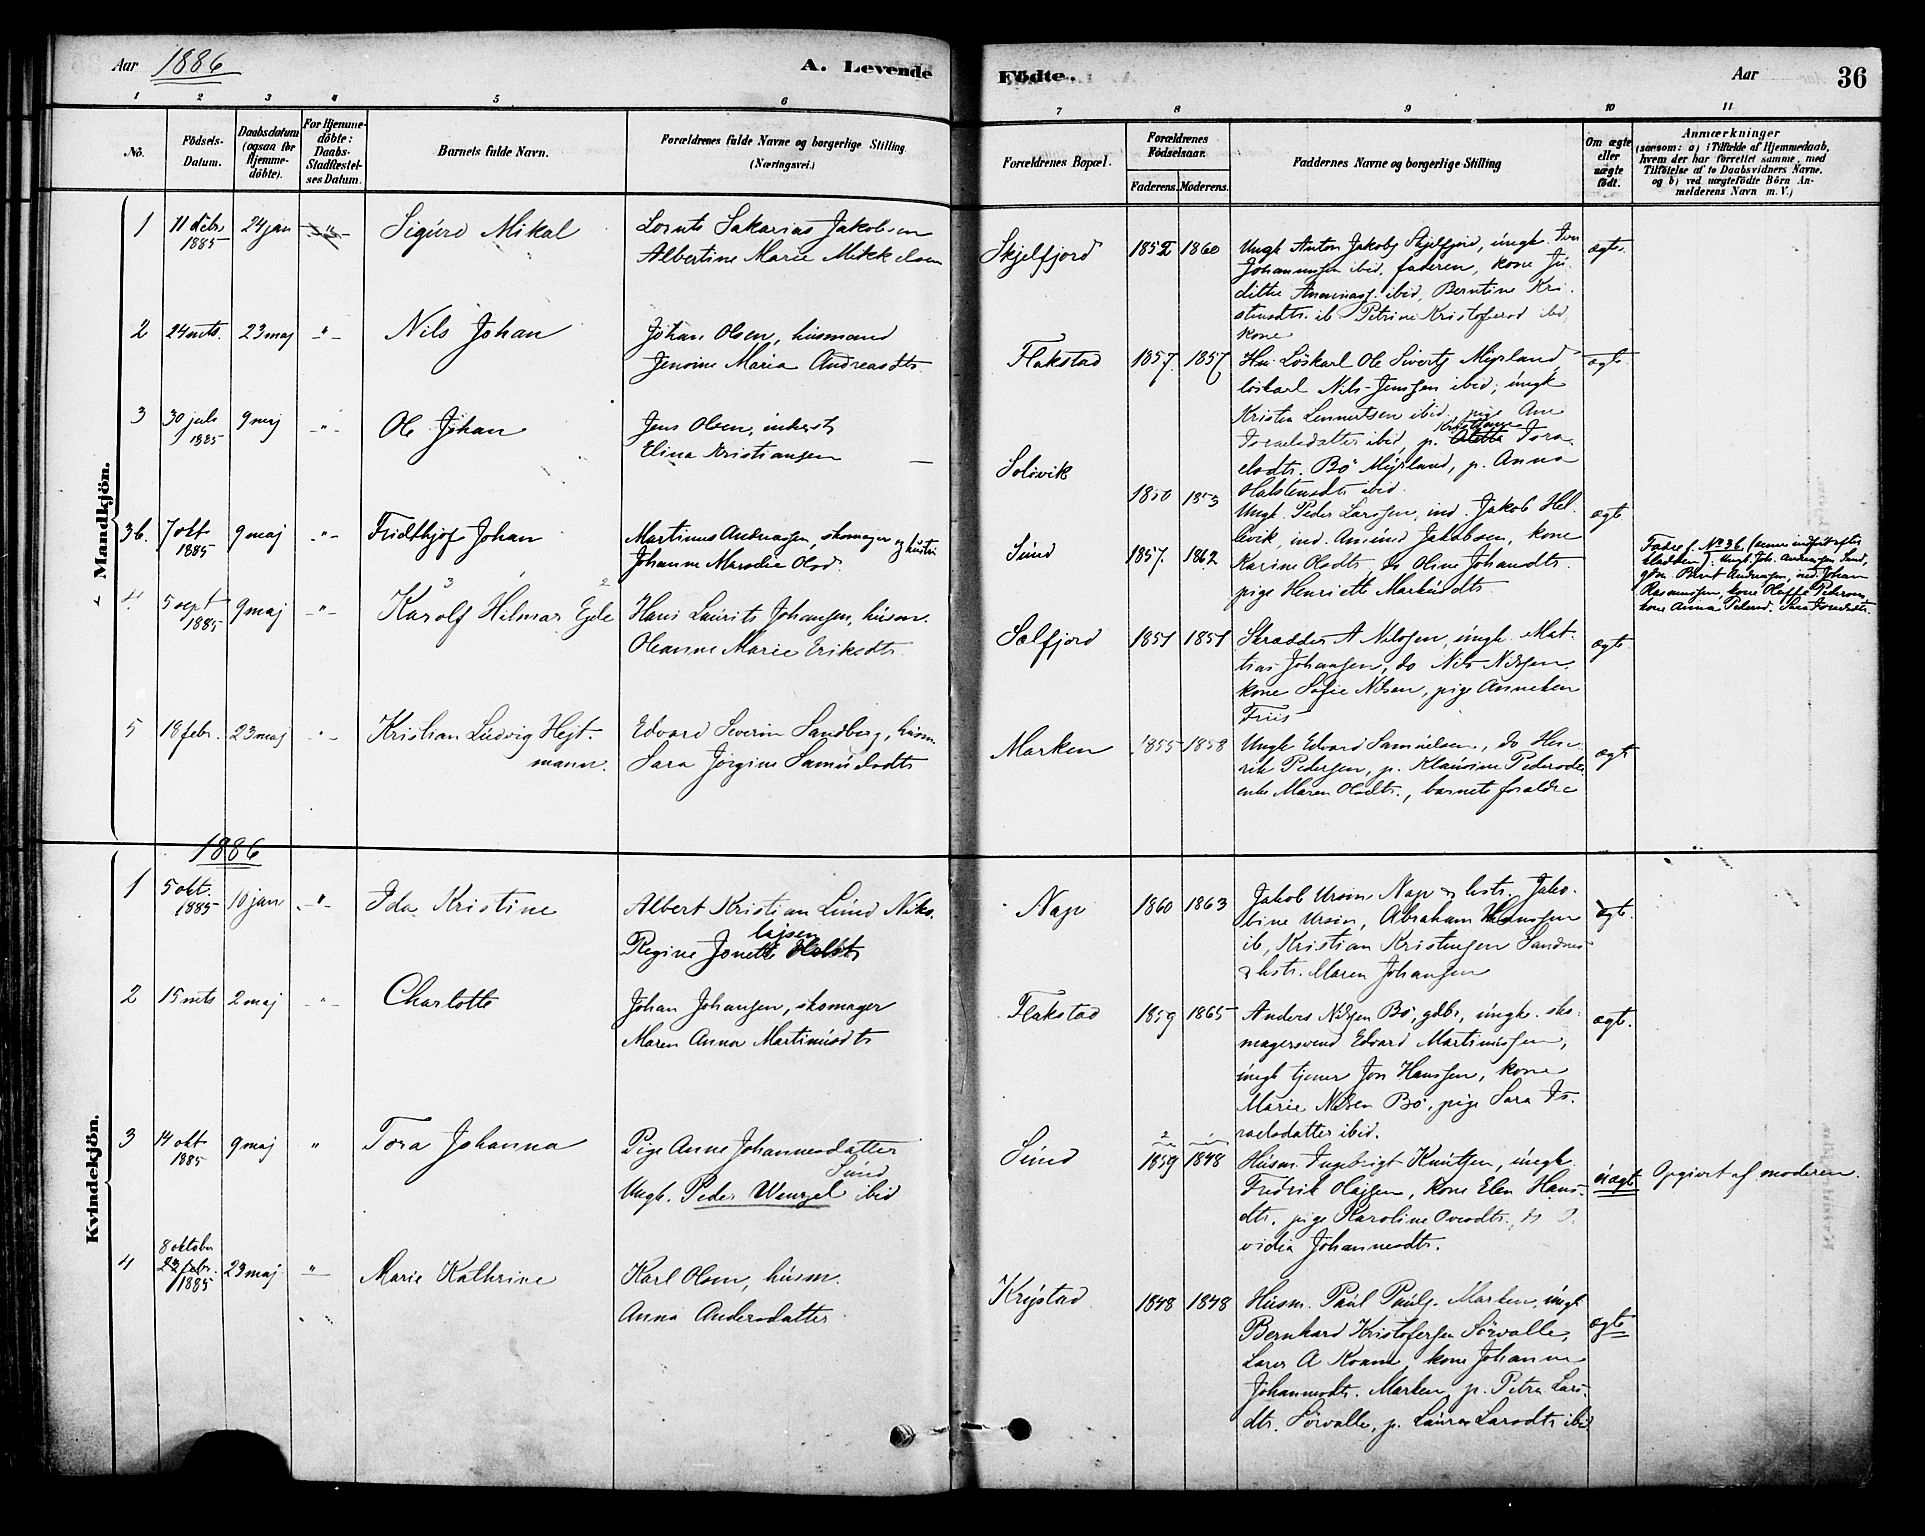 Aar 1886
A. Levende
Födte.
Aar
36
1
2
3
4
5
6
7
8
9
10
11
Nô.
Födsels-
Datum.
Daabsdatum
(ogsaa for
Hjemme-
döbte).
For Hjemme-
döbte:
Daabs-
Stadfæstel-
ses Datum.
Barnets fulde Navn.
Forældrenes fulde Navne og borgerlige Stilling
(Næringsvei.)
Forældrenes Bopæl.
Forældrenes
Födselsaar.
Faderens.
Moderens.
Faddernes Navne og borgerlige Stilling
Om ægte
eller
uægte
födt.
Anmærkninger
(saasom: a) i Tilfælde af Hjemmedaab,
hvem der har forrettet samme, med
Tilföielse af to Daabsvidners Navne.
og b) ved uægtefödte Börn An-
melderens Navn m. V.)
Mandkjön.
1
11 debr
1885
24 jan
Sigurd Mikal
Lornts Sakarias Jakobsen
Albertine Marie Mikkelsen
Skjelfjord
1852
1860
Ungk. Anton Jakobs Skjelfjord, ungk. Iver
Johannesen ibid, faderen, kone Ju-
ditthe ibid, Berntine Kri-
stensdtr. ib Petrine Kristofersd ibid,
kone
ægte
2
24 mts.
23 maj
Nils Johan
Johan Olsen, husmand
Jensine Maria Andreasdtr
Flakstad
1857.
1857
Löskarl Ole Siverts Myrland,
löskarl Nils Jenssen ibid, ungk
Kristen Lennertsen ibid. pige Ane
Israelsdatter ibid, p. Israe-
elsdtr. Bö Myrland, p. Anna
Halstensdtr ibid.
ægte.
3
30 juli
1885
9 maj
Ole Johan
Jens Olsen, inderst
Elina Kristiansen
Solvik
1850
1853
Ungk. Peder Larssen, ind. Jakob Hel-
levik, ind. Amund Jakobsen, kone
Karine Olsdtr, do Oline Johansdtr.
pige Henriette Markusdtr.
ægte.
3b.
7 okt
1885
9 maj
Fridthjof Johan
Martinus Andreassen, skomager og hustru
Johanne Marselie Olsd.
Sund
1857.
1862
Fadre f. No 3b (senere indført efter
Ungk. Joh. Andreassen Sund,
Bernt Andreassen, ind. Johan
Rasmussen, kone Oluffa Pedersen,
kone Anna Pedersd.
4.
5 sept
1885
9 maj
Karolf Hilmar Egde
Hans Laurits Johansen, husm.
Oleanne Marie Eriksdtr.
Sælfjord
1851
1851
Skrædder A Nilssen, ungk. Mat-
tias Johansen, do Nils Nilssen,
kone Sofie Nilsen, pige Anneken
Friis
ægte
5
18 febr.
23 maj
Kristian Ludvig Hejt-
mann.
Edvard Severin Sandberg, husm.
Sara Jörgine Samuelsdtr
Marken
1855
1858
Ungk Edvard Samuelsen, do Hen-
rik Pedersen, p. Klausine Pedersdtr
enke Maren Olsdtr., barnets foraldre
ægte
Kvindekjön.
1886
1
5 okt.
1885
10 jan
Ida Kristine
Albert Kristian Lund Niko-
lajsen
Regine Jonette Holst
Nap
1860
1863
Jakob Ursin Nap & hstr. Jako-
bine Ursin, Abraham Hanssen
ib, Kristian Kristensen Sandnes
& hstr. Maren Johansen
ægte.
2
15 mts
2 maj
Charlotte
Johan Johansen, skomager
Maren Anna Martinusdtr
Flakstad
1859
1865
Anders Nilssen Bö, gdbr, ungk. sko-
magersvend Edvard Martinussen,
ungk tjener Jon Hanssen, kone
Marie Nilsen Bö, pige Sara Is-
raelsdatter ibid.
ægte.
3
14 okt
1885
9 maj
Tora Johanna
Pige Anne Johannesdatter
Sund
Ungk. Peder Wenzel ibid
Sund
1859
1848
Husm. Ingebrigt Knutsen, ungk.
Fredrik Olajsen, kone Elen Hans-
dtr, pige Karoline Ovesdtr, do O-
vidia Johannesdtr.
uægte
Opgivet af moderen.
4
8 oktober
23 febr.
1885
23 maj
Marie Kathrine
Karl Olsen, husm.
Anna Andersdatter
Krystad
1848
1848
Husm. Paul Pauls. Marken, ungk
Bernhard Kristofersen Sörvalle,
Lars A Kvam, kone Johanne
Johannesdtr. Marken, p. Petra Lars-
dtr. Sörvalle, p. Laura Larsdtr ibid
ægte